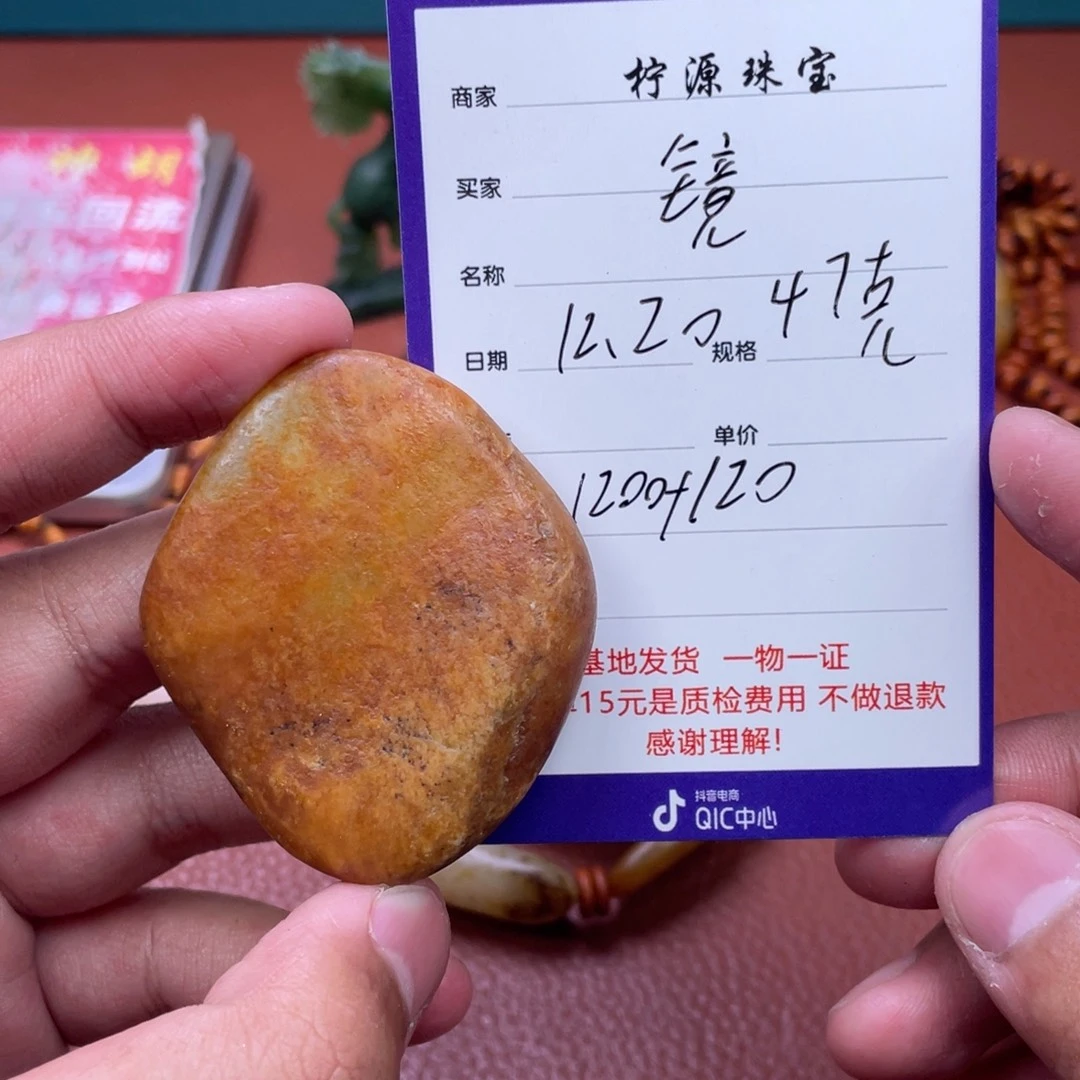 商家 柠源珠宝
买家 镜
名称
日期 12.20 规格 47克
单价
1200+120
基地发货 一物一证
15元是质检费用 不做退款
感谢理解!
抖音电商
QIC中心
回流